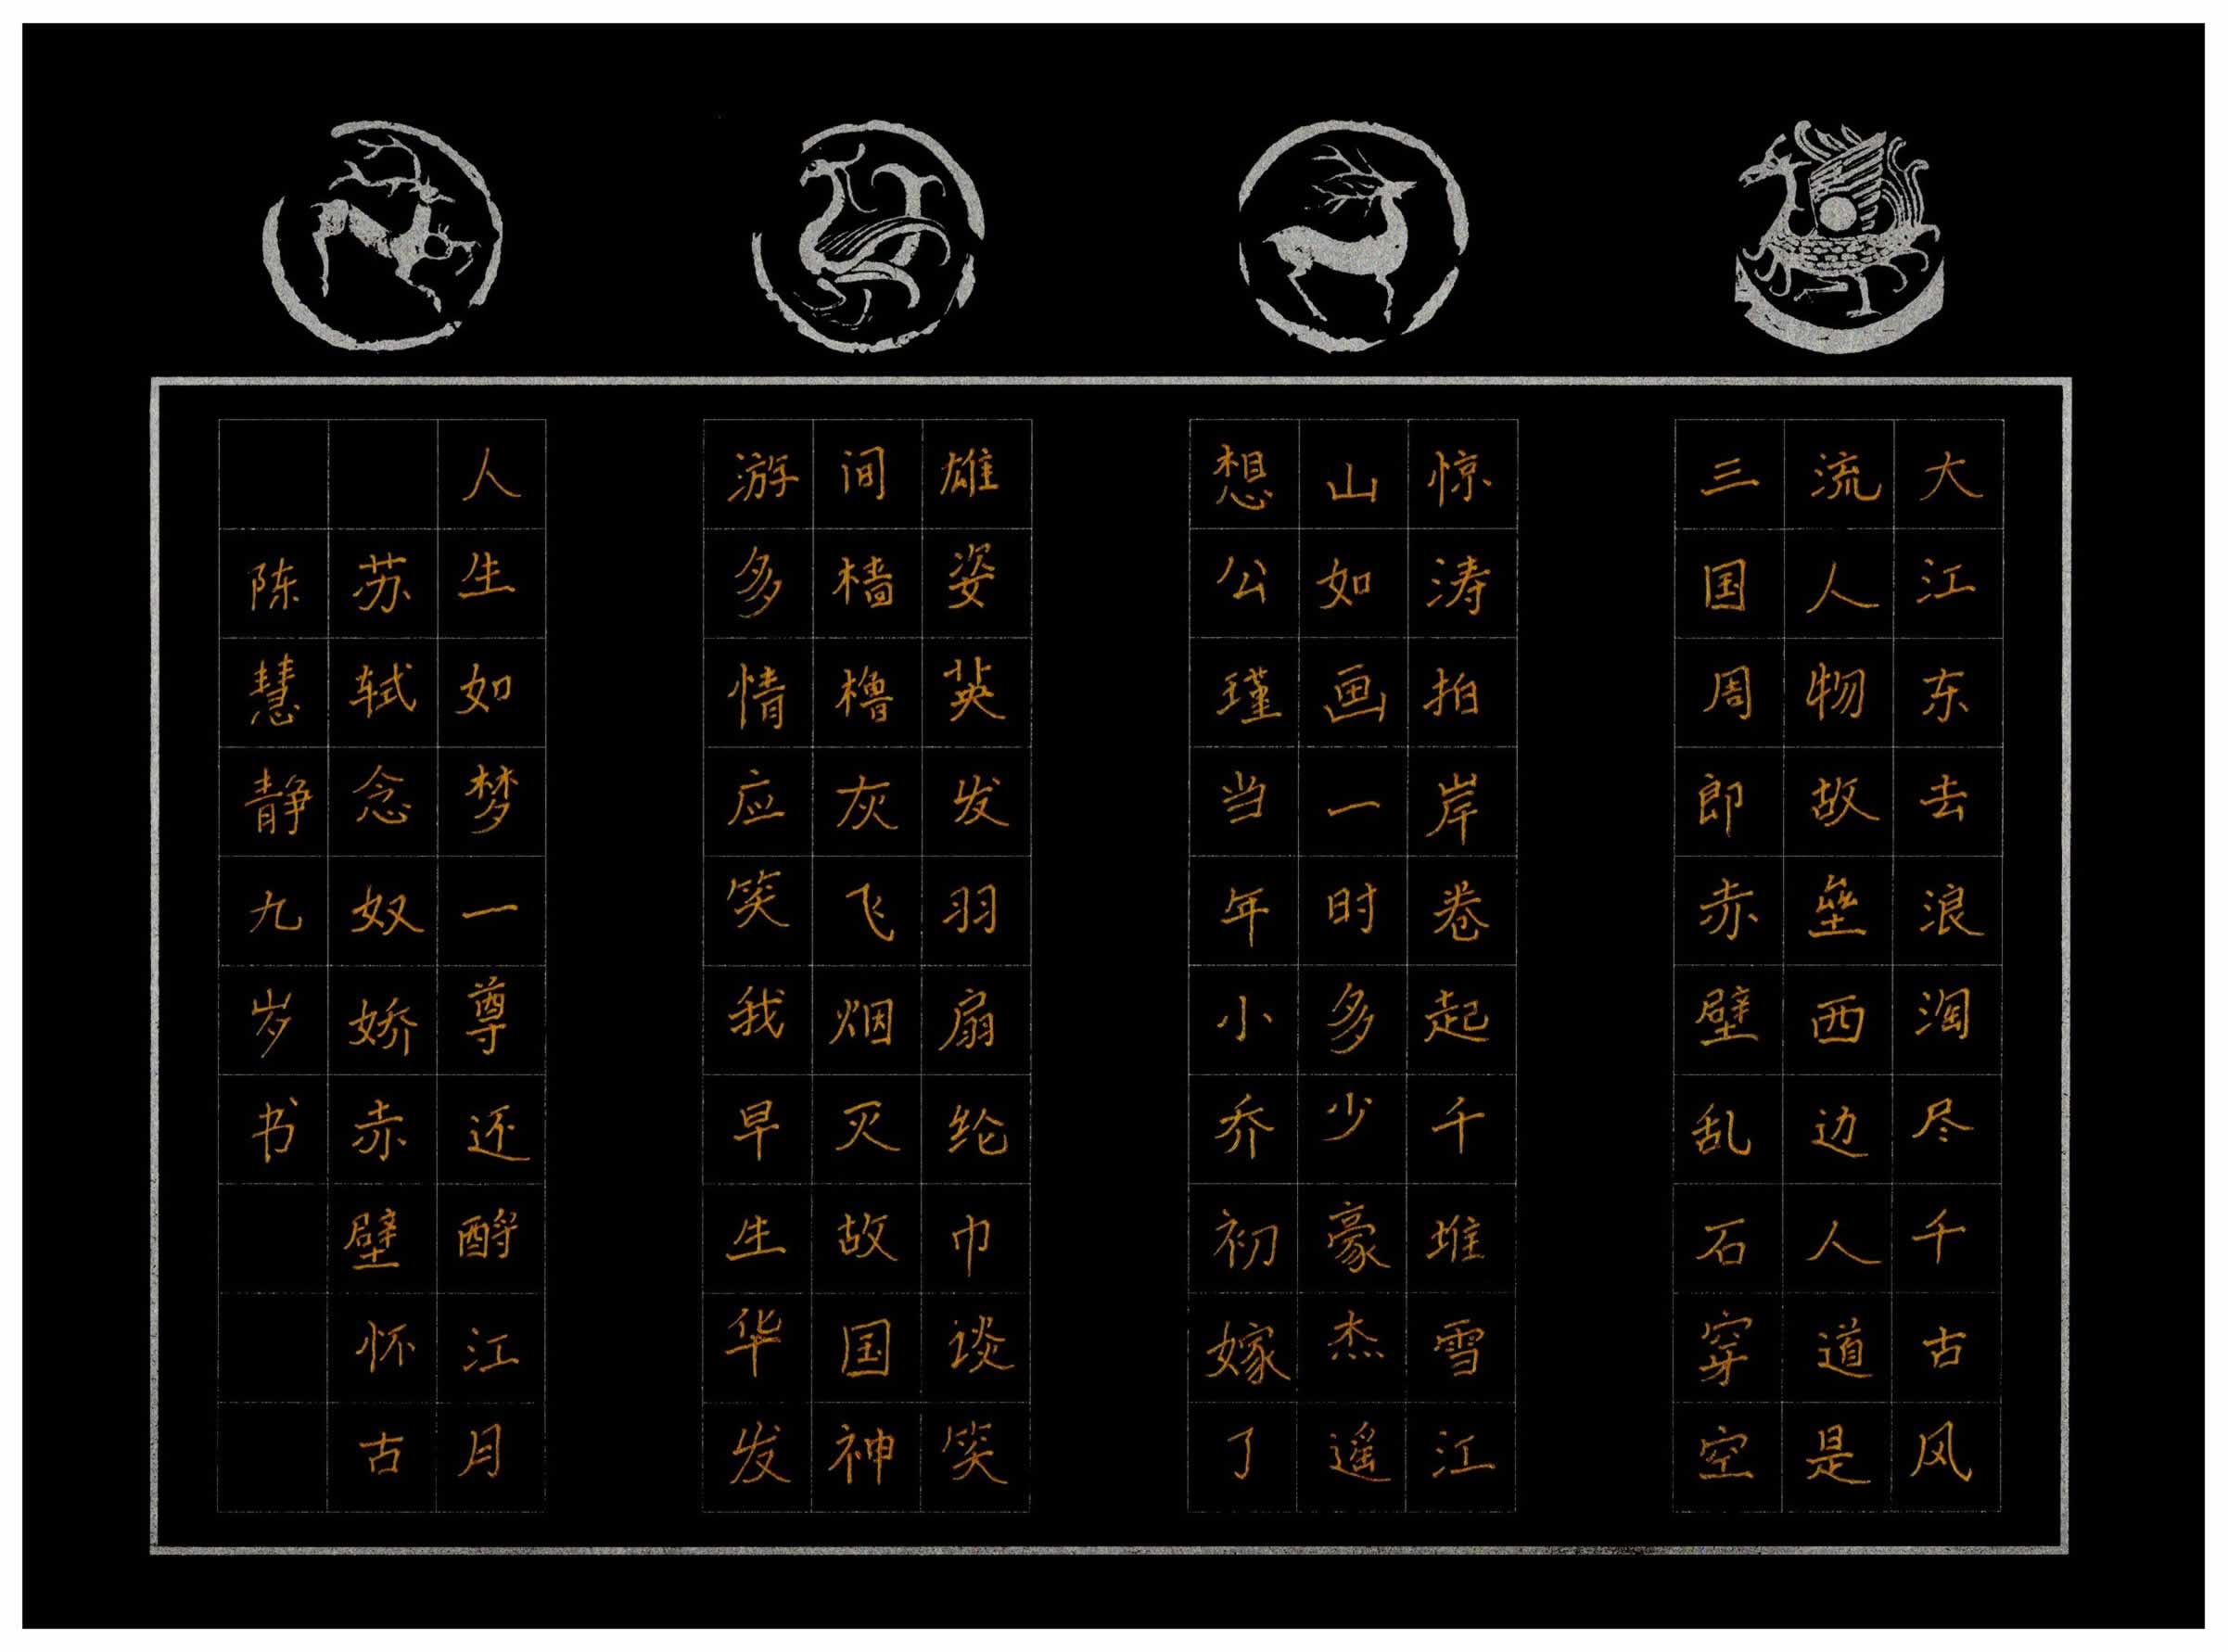 大江东去浪淘尽千古风
流人物故垒西边人道是
三国周郎赤壁乱石穿空
惊涛拍岸卷起千堆雪江
山如画一时多少豪杰遥
想公瑾当年小乔初嫁了
雄姿英发羽扇纶巾谈笑
间樯橹灰飞烟灭故国神
游多情应笑我早生华发
人生如梦一尊还酹江月
苏轼念奴娇赤壁怀古
陈慧静九岁书